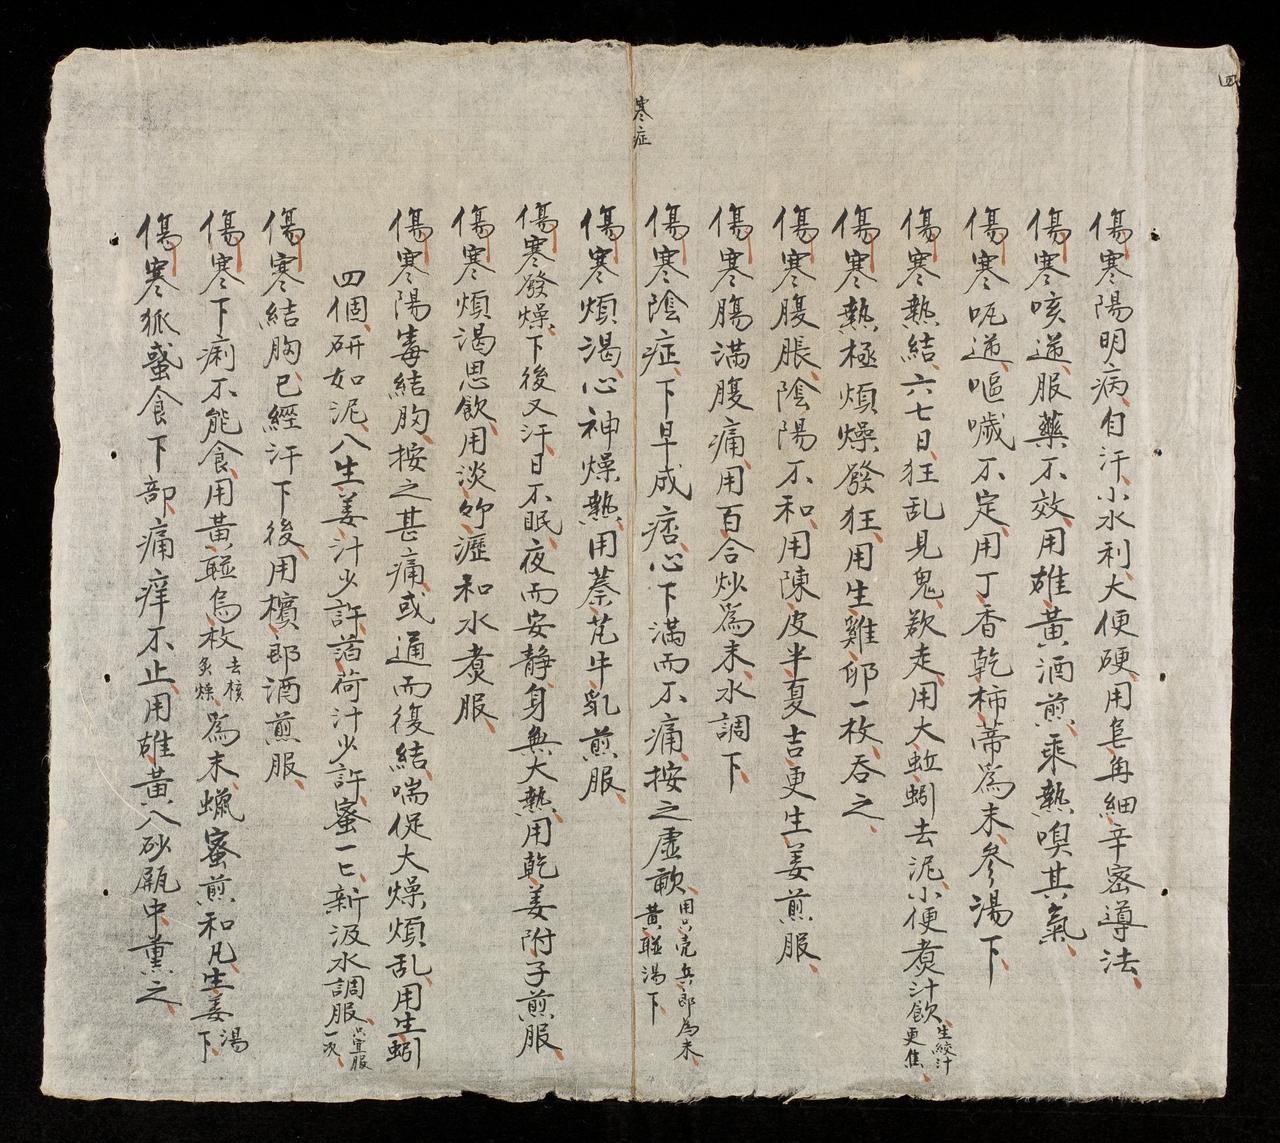 四
傷寒陽明病、自汗、小水利、大便硬、用皂角細辛密導法、
傷寒咳逆、服藥不效、用雄黃酒煎、乘熱嗅其氣、
傷寒呃逆、嘔噦不定、用丁香乾柿蒂為末、參湯下、
傷寒熱結、六七日、狂乱見鬼、欲走、用大蚯蚓去泥、小便煑汁飲、生絞汁更佳、
傷寒熱極煩燥發狂、用生雞卵一枚、吞之、
傷寒腹脹、陰陽不和、用陳皮半夏吉更生姜煎服、
傷寒膓滿腹痛、用百合炒為末、水調下、
寒症
傷寒陰症、下早成痞、心下滿而不痛、按之虛軟、用只壳兵郎為末、黃聯湯下、
傷寒煩渴、心神燥熱、用蔡芘牛乳煎服、
傷寒發燥、下後又汗、日不眠、夜而安静、身無大熱、用乾姜附子煎服、
傷寒煩渴思飲、用淡竹瀝和水煑服、
傷寒陽毒結胸、按之甚痛、或通而復結、喘促大燥煩乱、用生蚓
四個、研如泥、入生姜汁少許、萡荷汁少許、蜜一匕、新汲水調服、只宜服一次、
傷寒結胸、已經汗下後、用檳郎酒煎服、
傷寒下痢不能食、用黃聯烏枚去核炙燥、為末、蠟蜜煎和凡、生姜湯下、
傷寒狐惑食下部、痛痒不止、用雄黃入砂瓶中熏之、